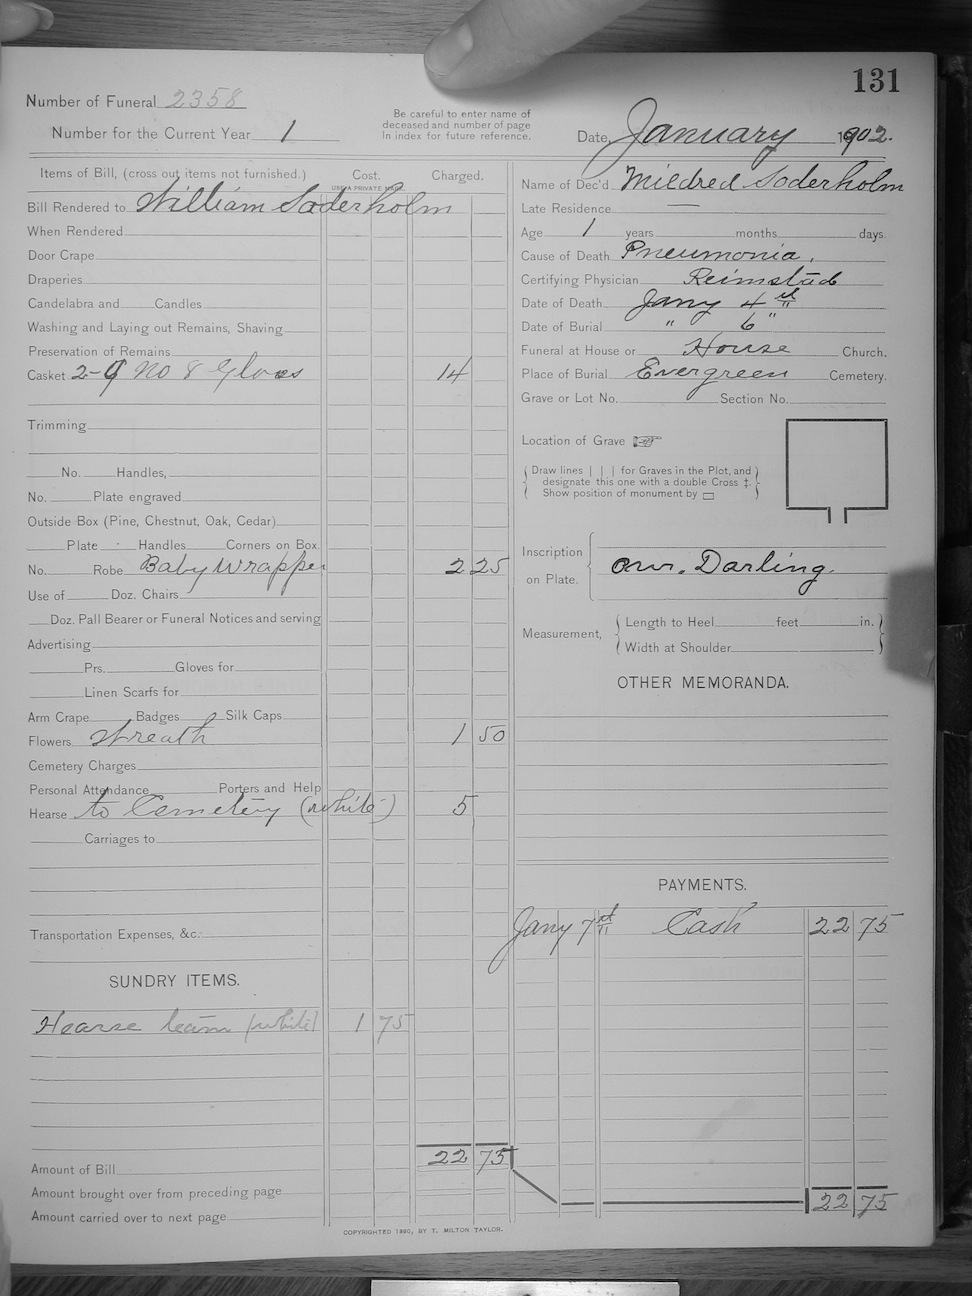 131
Number of Funeral 2358
Number for the Current Year 1
Be careful to enter name of
deceased and number of page
In index for future reference.
Date, January 1902.
Items of Bill, (cross out items not furnished.) Cost. Charged.
USE A PRIVATE MARK.
Bill Rendered to William Soderholm
When Rendered
Door Crape
Draperies
Candelabra and Candles
Washing and Laying out Remains, Shaving
Preservation of Remains
Casket 2-9 No 8 Gloss 14
Trimming
No. Handles,
No. Plate engraved
Outside Box (Pine, Chestnut, Oak, Cedar)
Plate Handles Corners on Box.
No. Robe Baby Wrapper 2 25
Use of Doz. Chairs
Doz. Pall Bearer or Funeral Notices and serving
Advertising
Prs. Gloves for
Linen Scarfs for
Arm Crape Badges Silk Caps
Flowers Wreath 1 50
Cemetery Charges
Personal Attendance Porters and Help
Hearse to Cemetery (white) 5
Carriages to
Transportation Expenses, &c.
SUNDRY ITEMS.
Hearse team (white) 1 75
Amount of Bill 22 75
Amount brought over from preceding page
Amount carried over to next page
Name of Dec'd Mildred Soderholm
Late Residence —
Age 1 years months days.
Cause of Death Pneumonia,
Certifying Physician Reimstad
Date of Death Jany 4th
Date of Burial " 6"
Funeral at House or House Church.
Place of Burial Evergreen Cemetery.
Grave or Lot No. Section No.
Location of Grave ☞
Draw lines | | | for Graves in the Plot, and
designate this one with a double Cross ‡.
Show position of monument by ▭
Inscription
on Plate. Our. Darling.
Measurement, Length to Heel feet in.
Width at Shoulder
OTHER MEMORANDA.
PAYMENTS.
Jany 7th Cash 22 75
22 75
COPYRIGHTED 1890, BY T. MILTON TAYLOR.